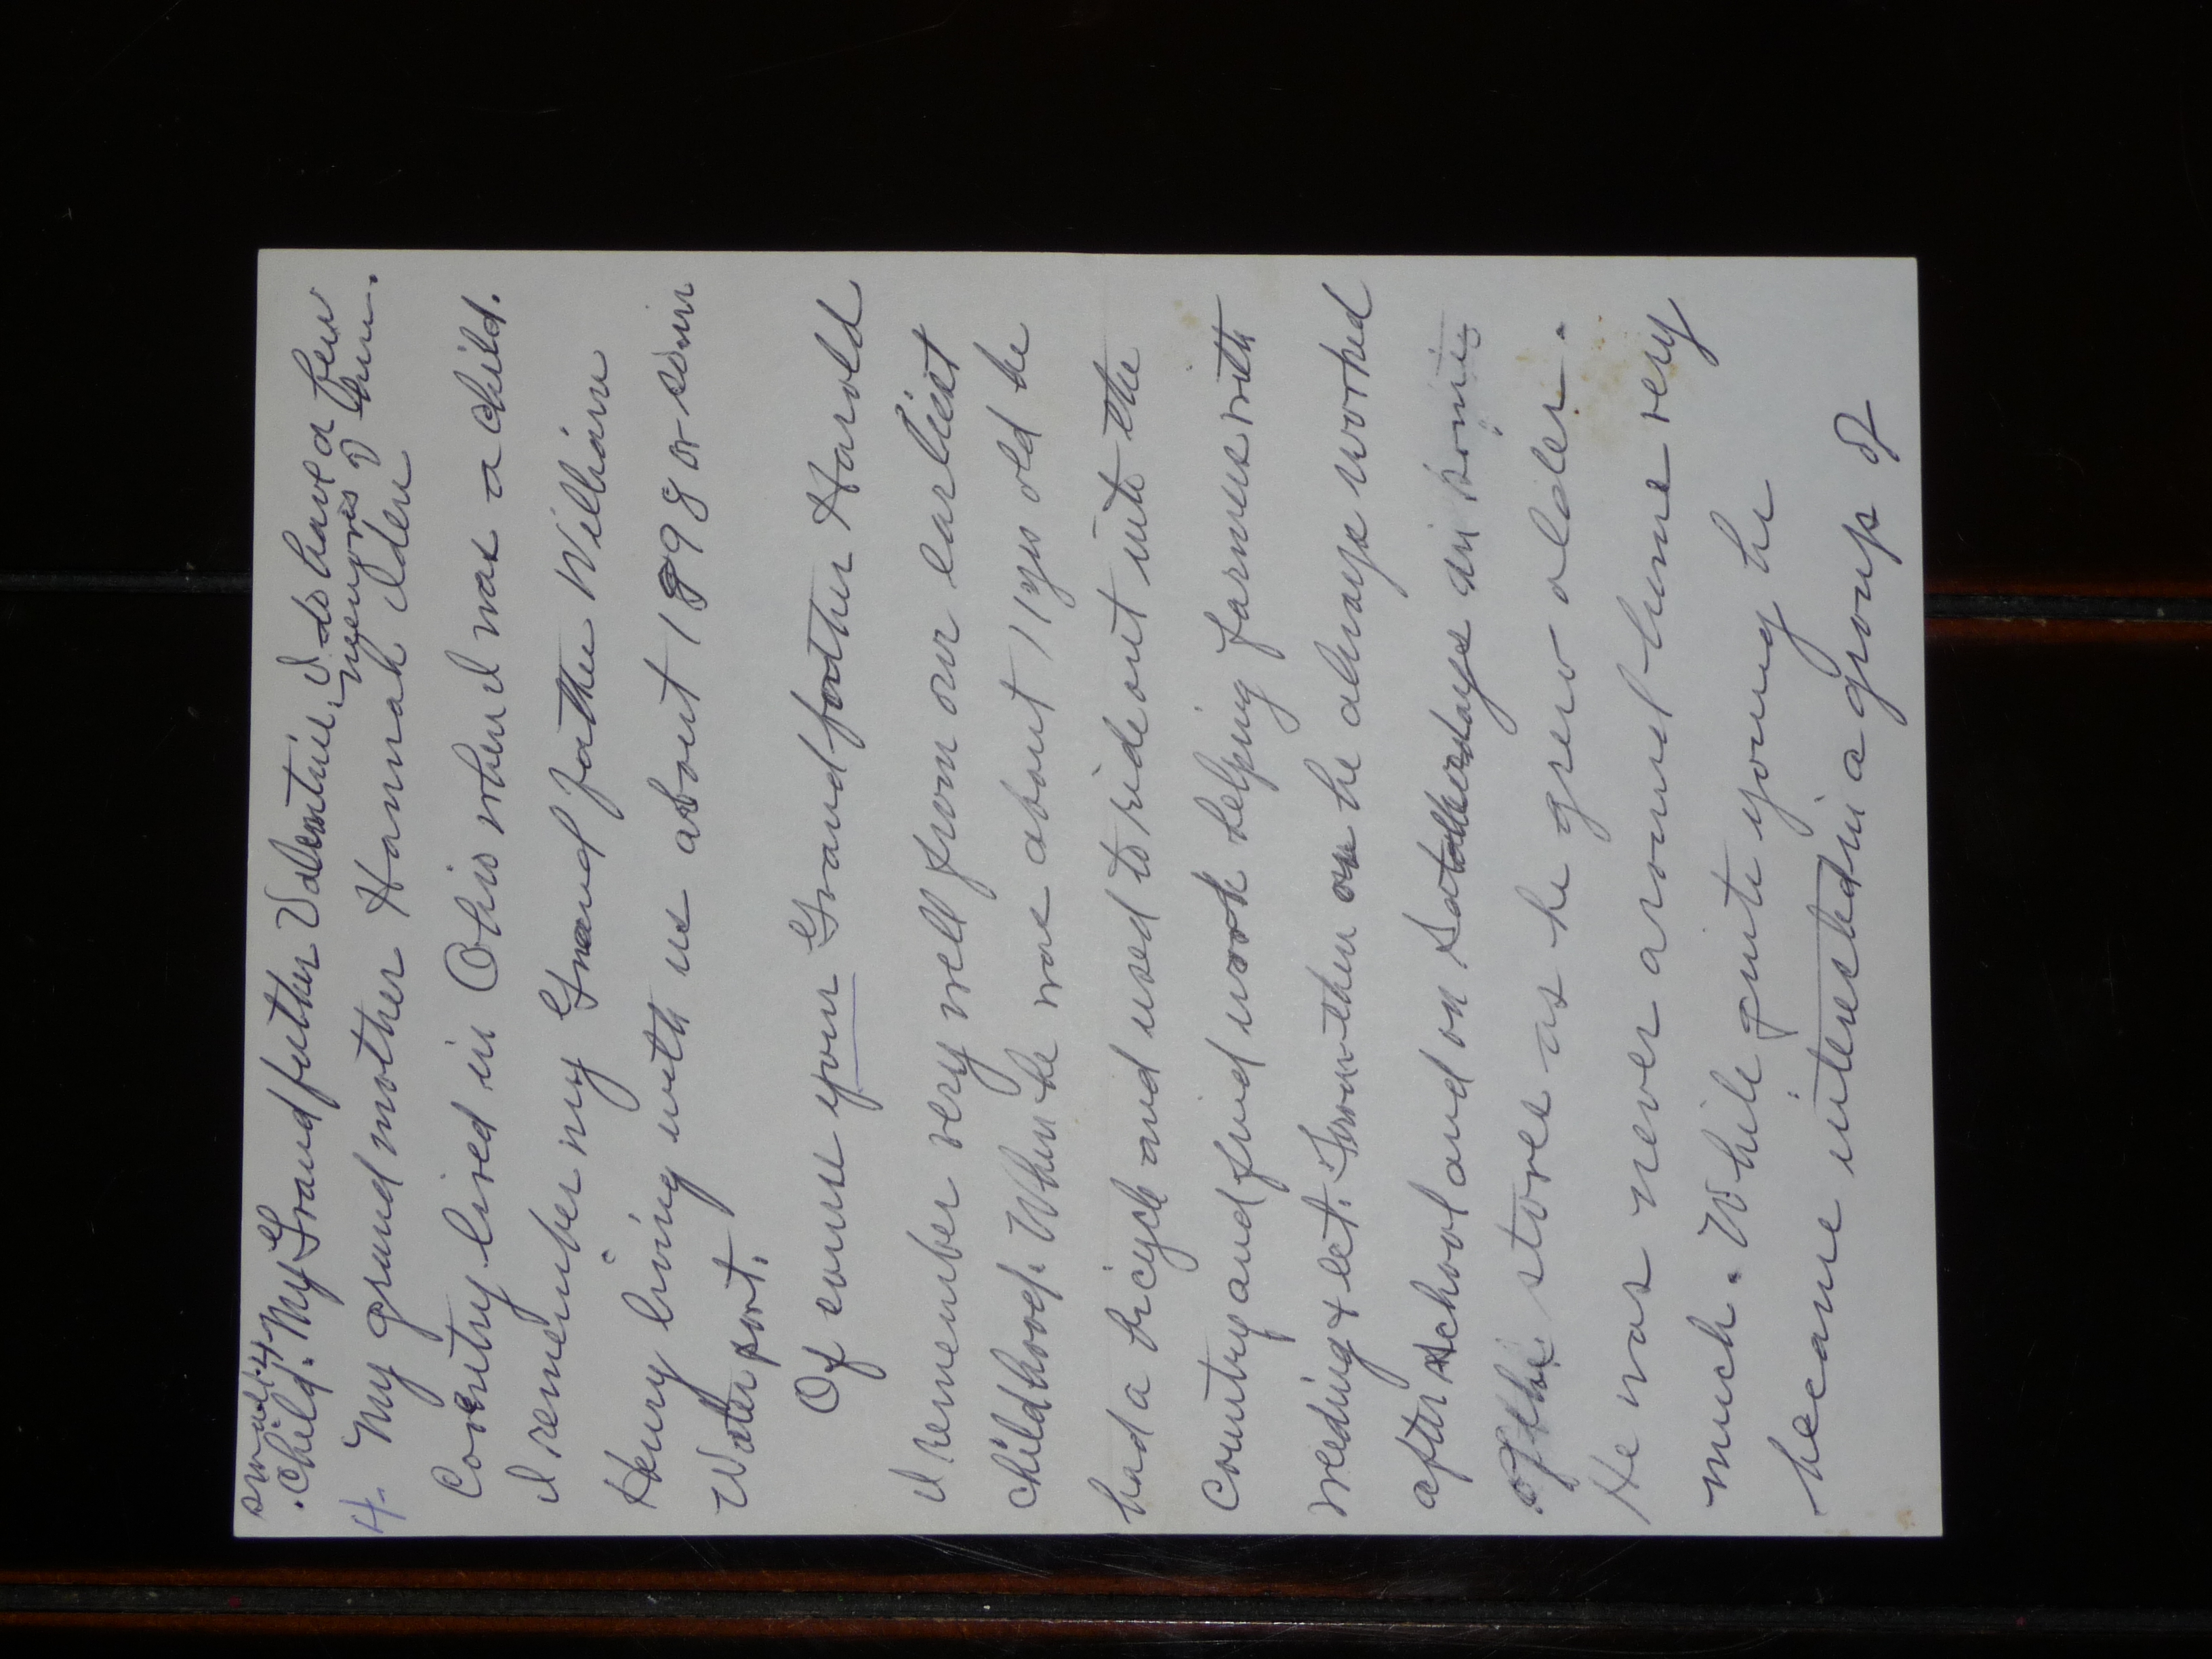 small
child. My Grandfather Valentine. I do have a few
memories of him.
4. My grand mother Hannah Iden
Coventry lived in Ohio when I was a child.
I remember my Grand father William
Henry living with us about 1898 or so in
Waterport.
Of course your Grandfather Harold
I remember very well from our earliest
childhood. When he was about 11 yrs old he
had a bicycle and used to ride out into the
country and find work helping farmers with
weeding & ect. From then on he always worked
after school and on Satherdays in some
of the stores as he grew older.
He was never around home very
much. While quite young he
became interested in a group of